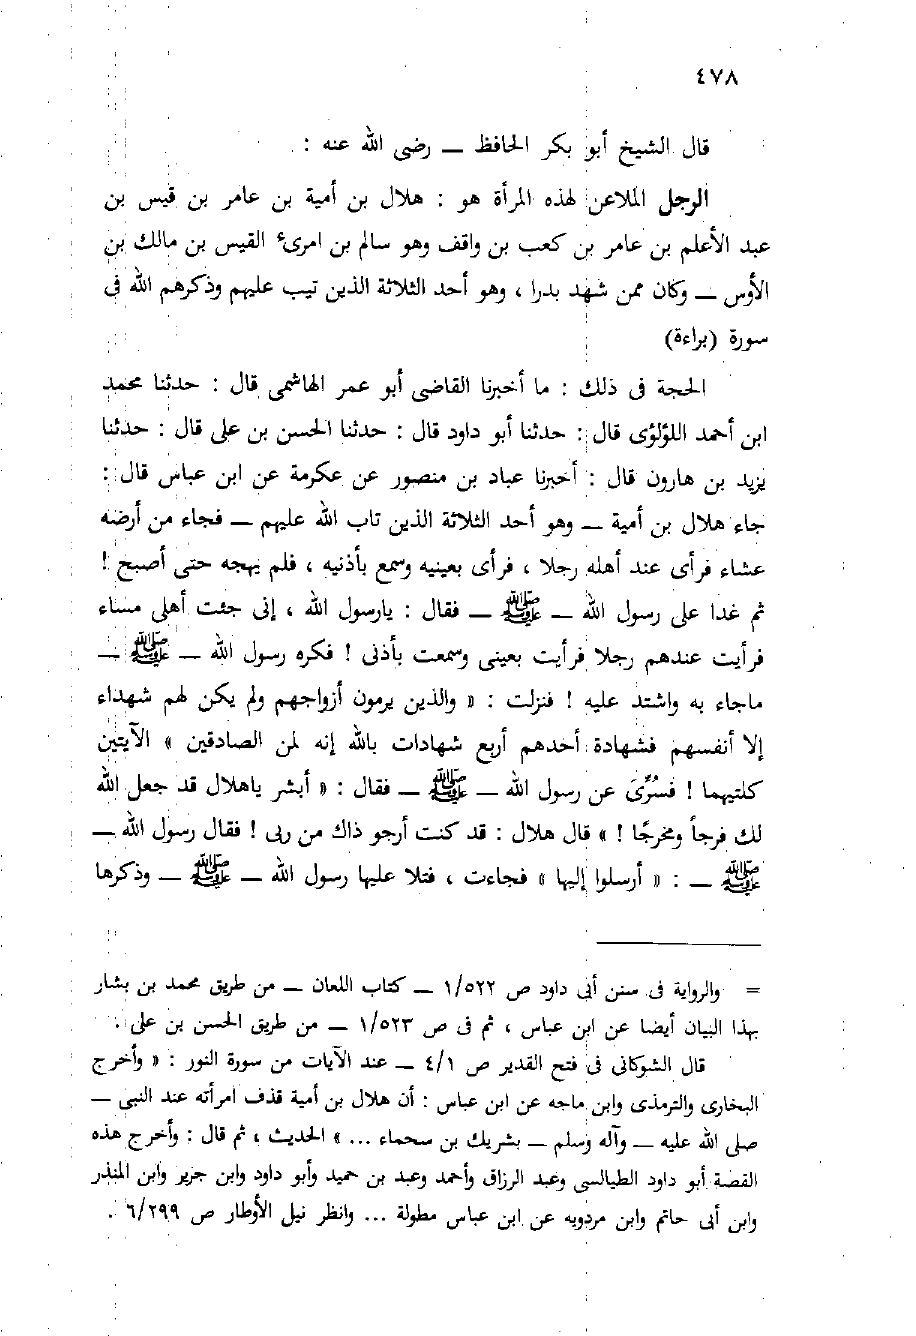 ٤٧٨
قال الشيخ أبو بكر الحافظ ــ رضى الله عنه :
الرجل الملاعن لهذه المرأة هو : هلال بن أمية بن عامر بن قيس بن
عبد الأعلم بن عامر بن كعب بن واقف وهو سالم بن امرىء القيس بن مالك بن
الأوس ــ وكان ممن شهد بدرا ، وهو أحد الثلاثة الذين تيب عليهم وذكرهم الله فى
سورة (براءة)
الحجة فى ذلك : ما أخبرنا القاضى أبو عمر الهاشمى قال : حدثنا محمد
ابن أحمد اللؤلؤى قال : حدثنا أبو داود قال : حدثنا الحسن بن على قال : حدثنا
يزيد بن هارون قال : أخبرنا عباد بن منصور عن عكرمة عن ابن عباس قال :
جاء هلال بن أمية ــ وهو أحد الثلاثة الذين تاب الله عليهم ــ فجاء من أرضه
عشاء فرأى عند أهله رجلا ، فرأى بعينيه وسمع بأذنيه ، فلم يهجه حتى أصبح !
ثم غدا على رسول الله ــ ﷺ ــ فقال : يارسول الله ، إنى جئت أهلى مساء
فرأيت عندهم رجلا فرأيت بعينى وسمعت بأذنى ! فكره رسول الله ــ ﷺ ــ
ماجاء به واشتد عليه ! فنزلت : « والذين يرمون أزواجهم ولم يكن لهم شهداء
إلا أنفسهم فشهادة أحدهم أربع شهادات بالله إنه لمن الصادقين » الآيتين
كلتيهما ! فسُرِّىَ عن رسول الله ــ ﷺ ــ فقال : « أبشر ياهلال قد جعل الله
لك فرجاً ومخرجًا ! » قال هلال : قد كنت أرجو ذاك من ربى ! فقال رسول الله ــ
ﷺ ــ : « أرسلوا إليها » فجاءت ، فتلا عليها رسول الله ــ ﷺ ــ وذكرها
= والرواية فى سنن أبى داود ص ١/٥٢٢ ــ كتاب اللعان ــ من طريق محمد بن بشار
بهذا البيان أيضا عن ابن عباس ، ثم فى ص ١/٥٢٣ ــ من طريق الحسن بن على .
قال الشوكانى فى فتح القدير ص ٤/١ ــ عند الآيات من سورة النور : « وأخرج
البخارى والترمذى وابن ماجه عن ابن عباس : أن هلال بن أمية قذف امرأته عند النبى ــ
صلى الله عليه ــ وآله وسلم ــ بشريك بن سحماء ... » الحديث ، ثم قال : وأخرج هذه
القصة أبو داود الطيالسى وعبد الرزاق وأحمد وعبد بن حميد وأبو داود وابن جرير وابن المنذر
وابن أبى حاتم وابن مردويه عن ابن عباس مطولة ... وانظر نيل الأوطار ص ٦/٢٩٩ .